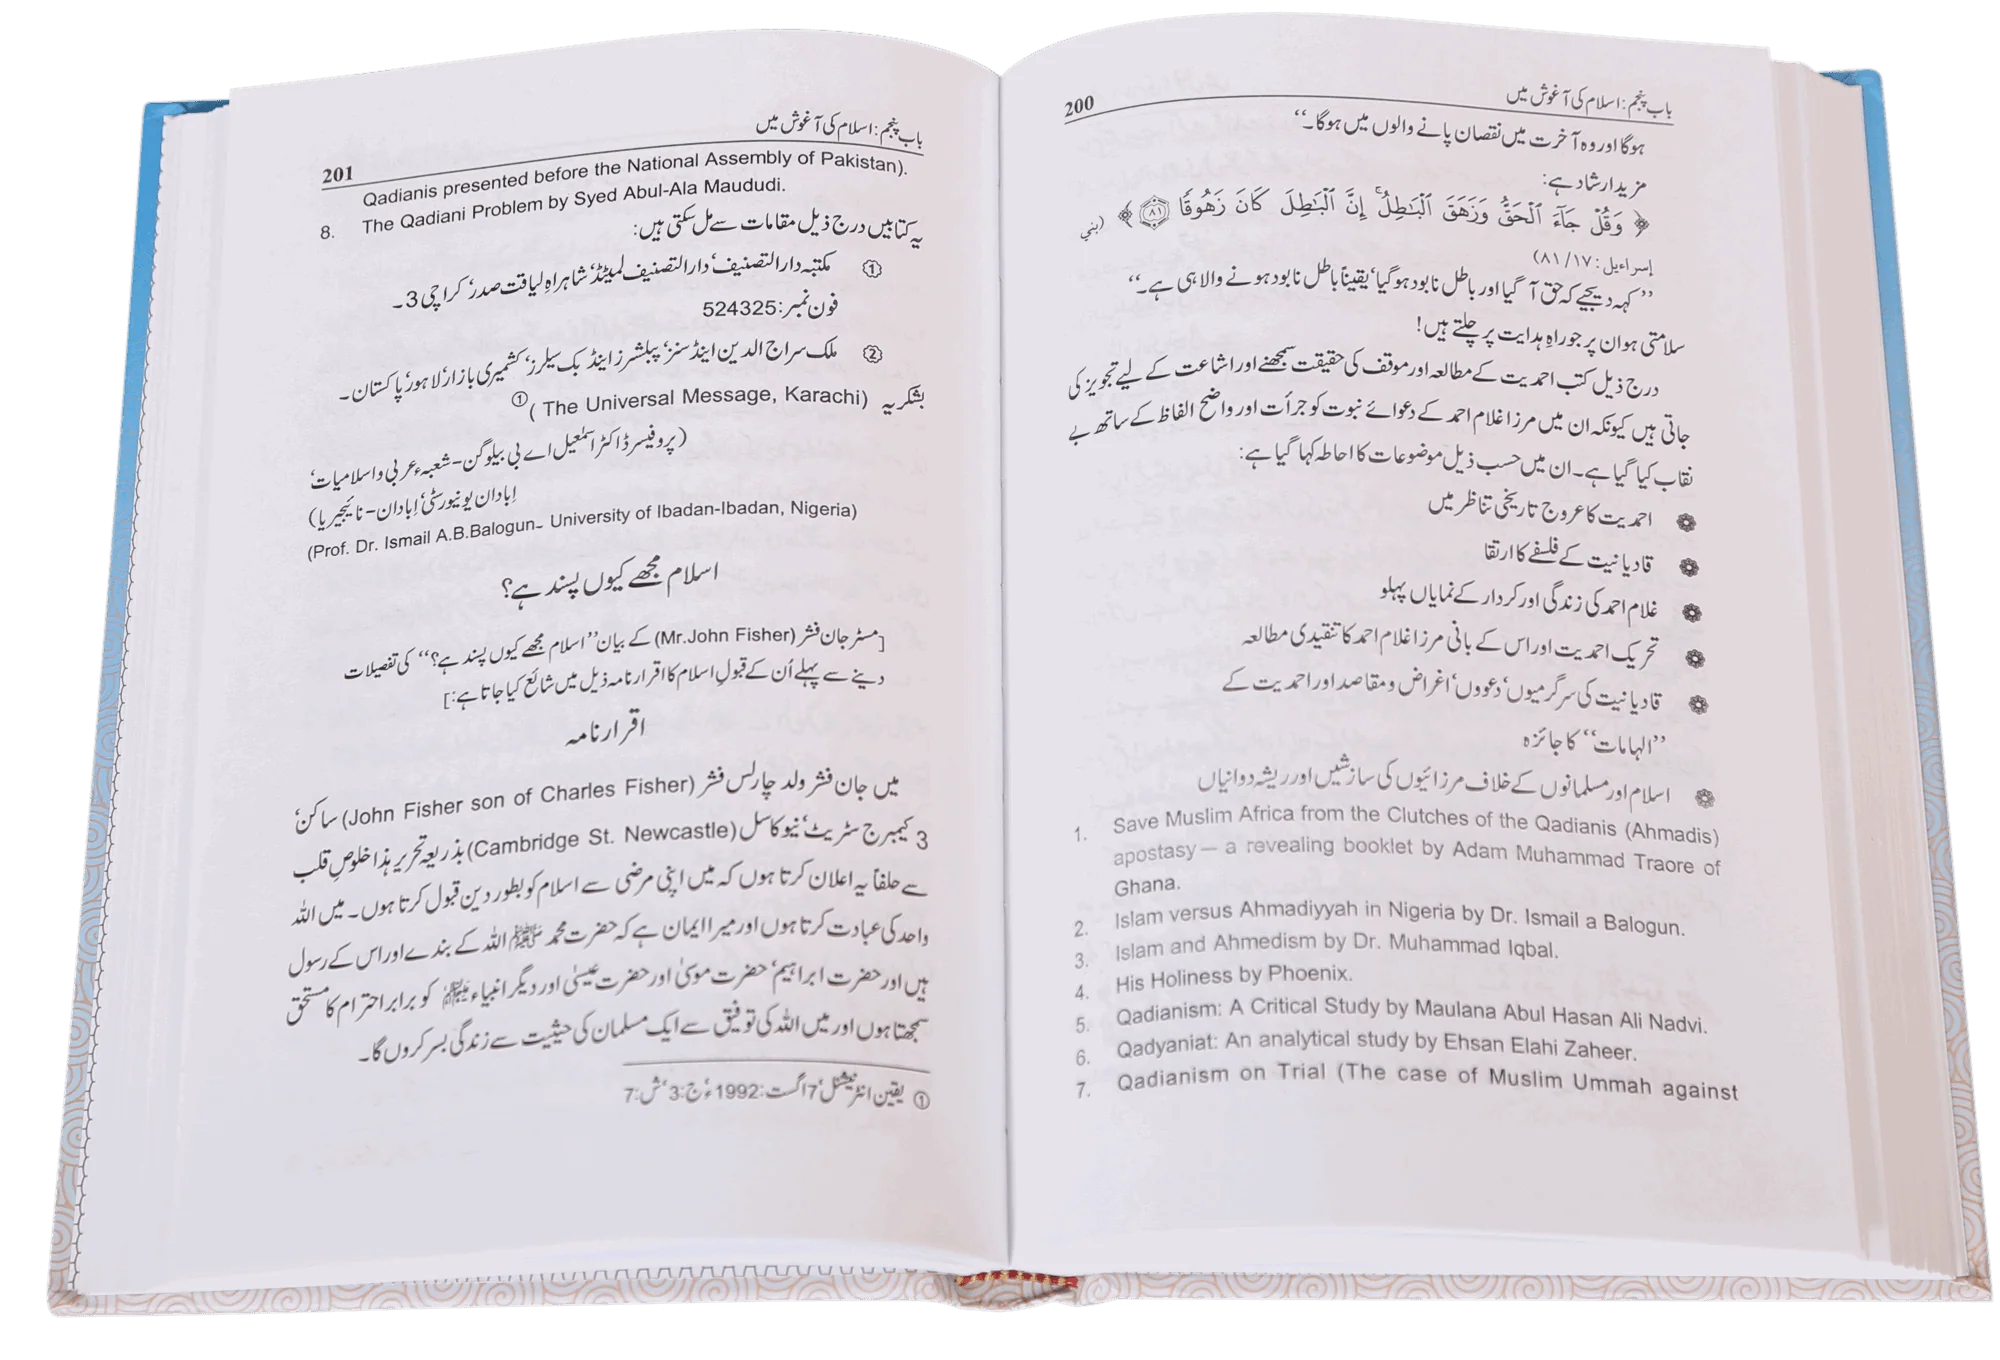 باب پنجم: اسلام کی آغوش میں 200
ہوگا اور وہ آخرت میں نقصان پانے والوں میں ہوگا۔‘‘
مزید ارشاد ہے:
﴿ وَقُلْ جَآءَ ٱلْحَقُّ وَزَهَقَ ٱلْبَـٰطِلُ ۚ إِنَّ ٱلْبَـٰطِلَ كَانَ زَهُوقًا ۝٨١ ﴾ (بني
إسراءيل: ١٧/ ٨١)
’’کہہ دیجیے کہ حق آ گیا اور باطل نابود ہو گیا‘ یقیناً باطل نابود ہونے والا ہی ہے۔‘‘
سلامتی ہو ان پر جو راہِ ہدایت پر چلتے ہیں!
درج ذیل کتب احمدیت کے مطالعہ اور موقف کی حقیقت سمجھنے اور اشاعت کے لیے تجویز کی
جاتی ہیں کیونکہ ان میں مرزا غلام احمد کے دعوائے نبوت کو جرأت اور واضح الفاظ کے ساتھ بے
نقاب کیا گیا ہے۔ ان میں حسب ذیل موضوعات کا احاطہ کہا گیا ہے:
احمدیت کا عروج تاریخی تناظر میں
قادیانیت کے فلسفے کا ارتقا
غلام احمد کی زندگی اور کردار کے نمایاں پہلو
تحریک احمدیت اور اس کے بانی مرزا غلام احمد کا تنقیدی مطالعہ
قادیانیت کی سرگرمیوں‘ دعووں‘ اغراض و مقاصد اور احمدیت کے
’’الہامات‘‘ کا جائزہ
اسلام اور مسلمانوں کے خلاف مرزائیوں کی سازشیں اور ریشہ دوانیاں
1. Save Muslim Africa from the Clutches of the Qadianis (Ahmadis)
apostasy— a revealing booklet by Adam Muhammad Traore of
Ghana.
2. Islam versus Ahmadiyyah in Nigeria by Dr. Ismail a Balogun.
3. Islam and Ahmedism by Dr. Muhammad Iqbal.
4. His Holiness by Phoenix.
5. Qadianism: A Critical Study by Maulana Abul Hasan Ali Nadvi.
6. Qadyaniat: An analytical study by Ehsan Elahi Zaheer.
7. Qadianism on Trial (The case of Muslim Ummah against
باب پنجم: اسلام کی آغوش میں 201
Qadianis presented before the National Assembly of Pakistan).
8. The Qadiani Problem by Syed Abul-Ala Maududi.
یہ کتابیں درج ذیل مقامات سے مل سکتی ہیں:
① مکتبہ دارالتصنیف‘ دارالتصنیف لمیٹڈ‘ شاہراہِ لیاقت صدر‘ کراچی 3۔
فون نمبر: 524325
② ملک سراج الدین اینڈ سنز‘ پبلشرز اینڈ بک سیلرز‘ کشمیری بازار‘ لاہور‘ پاکستان۔
بشکریہ (The Universal Message, Karachi) ①
(پروفیسر ڈاکٹر اسمٰعیل اے بی بیلوگن - شعبہء عربی و اسلامیات‘
اِبادان یونیورسٹی‘ اِبادان - نائیجیریا)
(Prof. Dr. Ismail A.B.Balogun- University of Ibadan-Ibadan, Nigeria)
اسلام مجھے کیوں پسند ہے؟
[مسٹر جان فشر (Mr.John Fisher) کے بیان ’’اسلام مجھے کیوں پسند ہے؟‘‘ کی تفصیلات
دینے سے پہلے اُن کے قبولِ اسلام کا اقرار نامہ ذیل میں شائع کیا جاتا ہے:]
اقرار نامہ
میں جان فشر ولد چارلس فشر (John Fisher son of Charles Fisher) ساکن‘
3 کیمبرج سٹریٹ‘ نیو کاسل (Cambridge St. Newcastle) بذریعہ تحریر ہذا خلوصِ قلب
سے حلفاً یہ اعلان کرتا ہوں کہ میں اپنی مرضی سے اسلام کو بطور دین قبول کرتا ہوں۔ میں اللہ
واحد کی عبادت کرتا ہوں اور میرا ایمان ہے کہ حضرت محمد ﷺ اللہ کے بندے اور اس کے رسول
ہیں اور حضرت ابراہیم‘ حضرت موسیٰ اور حضرت عیسیٰ اور دیگر انبیاء کو برابر احترام کا مستحق
سمجھتا ہوں اور میں اللہ کی توفیق سے ایک مسلمان کی حیثیت سے زندگی بسر کروں گا۔
① یقین انٹرنیشنل‘ 7 اگست: 1992ء‘ ج: 3‘ ش: 7